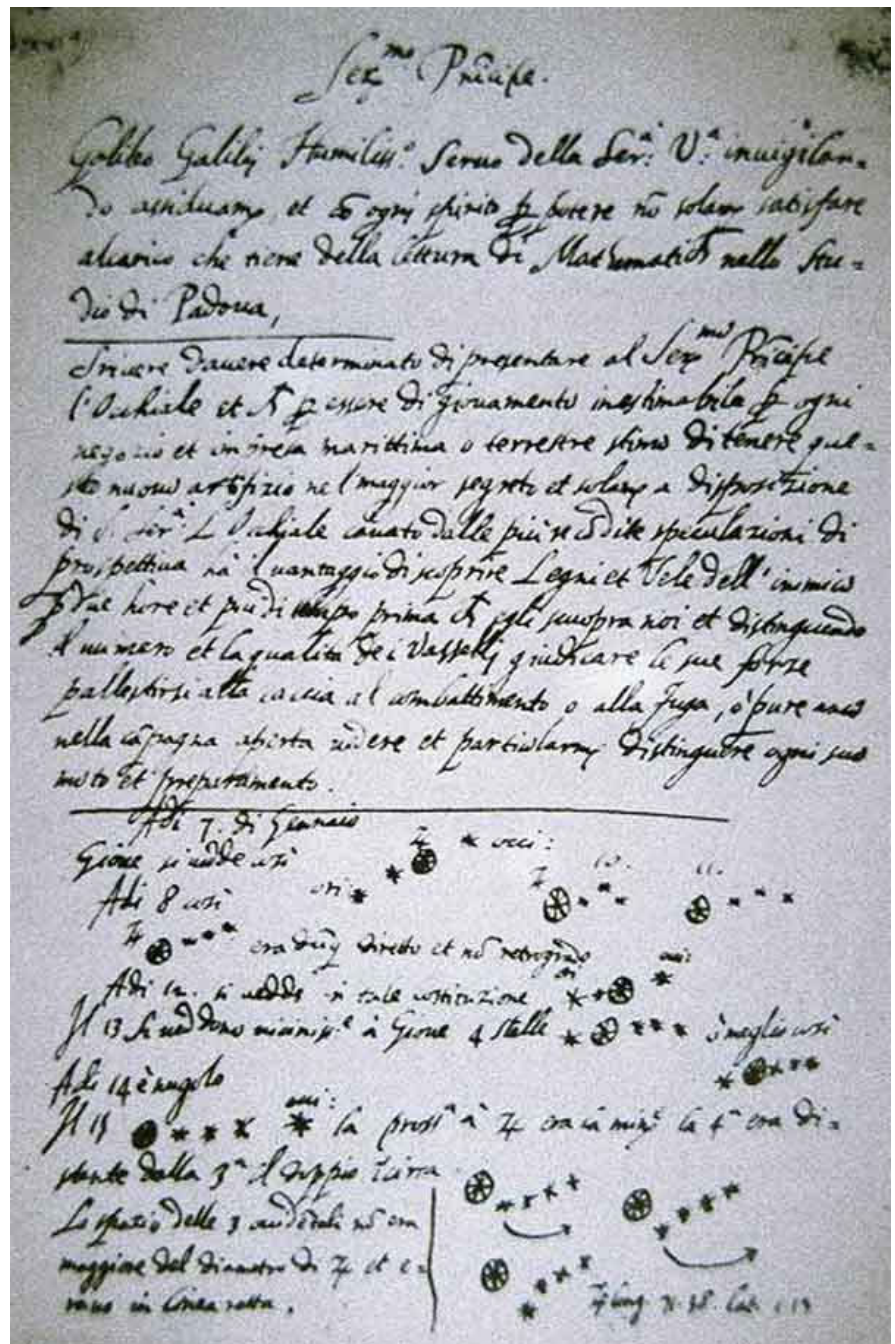 Ser.mo Principe.
Galileo Galilei Humiliss.o Servo della Ser.a V.a invigilan-
do assiduam.te et cō ogni spirito p potere nō solam.te satisfare
alcarico che tiene della lettura di Mathematich nello Stu-
dio di Padova,
Scrivere davere determinato di presentare al Ser.mo Prīcipe
l'Ochiale et p essere di giovamento inestimabile p ogni
negozio et impresa marittima o terrestre stimo di tenere que-
sto nuovo artifizio nel maggior segreto et solam.te a disposizione
di S. Ser.a L'Ochiale cavato dalle più recōdite speculazioni di
prospettiva ha il vantaggio di scoprire Legni et Vele dell'inimico
p due hore et più di tempo prima ch egli scuopra noi et distinguendo
il numero et la qualità dei Vasselli giudicare le sue forze
pallestirsi alla caccia al combattimento o alla fuga, o pure anco
nella cāpagna aperta vedere et particolarm.te distinguere ogni suo
moto et preparamento.
Adi 7. di Gennaio
Gione si vede così ♃ occi:
Adi 8 così ori: ♃ 10. 11.
♃ era dūq diretto et nō retrogrado
Adi 12. si vedde in tale costituzione ori occi:
Il 13 si veddono vicinis.e à Giove 4 stelle ò meglio così
Adi 14 è nugolo
Il 15 occi: la pross.a à ♃ era la min.e la 4.a era di-
stante dalla 3.a il doppio circa
Lo spazio delle 3 occidētali nō era
maggiore del diametro di ♃ et e-
rano in linea retta.
♃ long. 71.38. Lat. 1.13